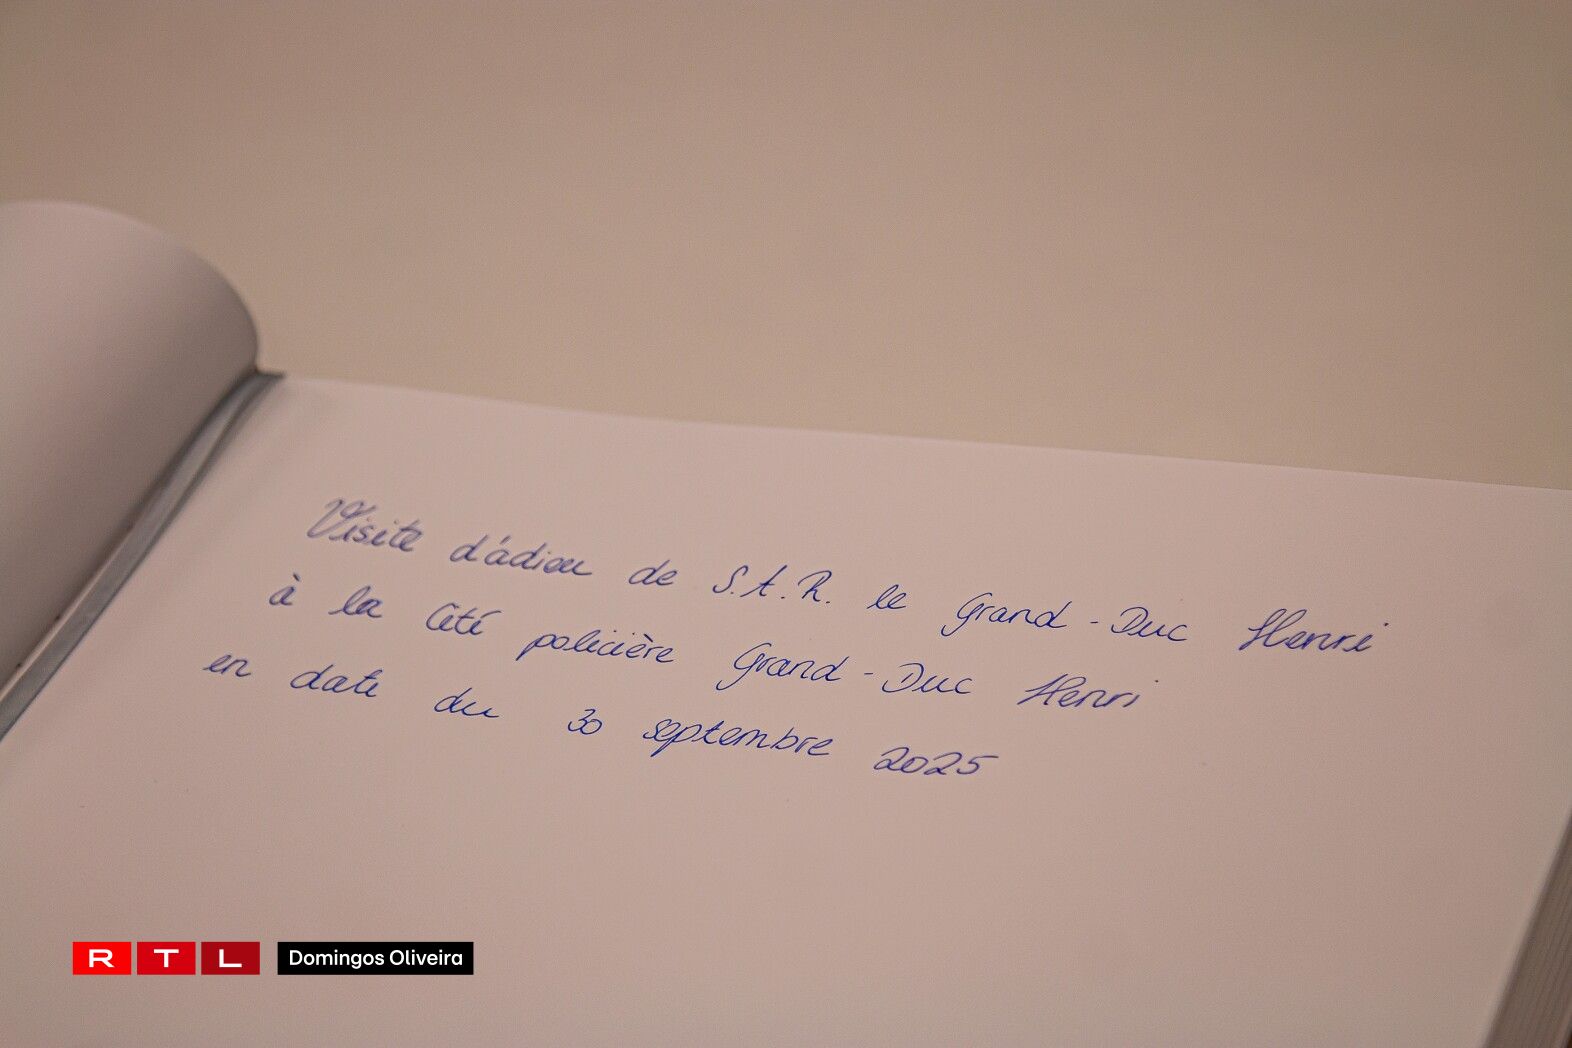 Visite d'àdieu de S.A.R. le Grand-Duc Henri
à la Cité policière Grand-Duc Henri
en date du 30 septembre 2025
RTL Domingos Oliveira